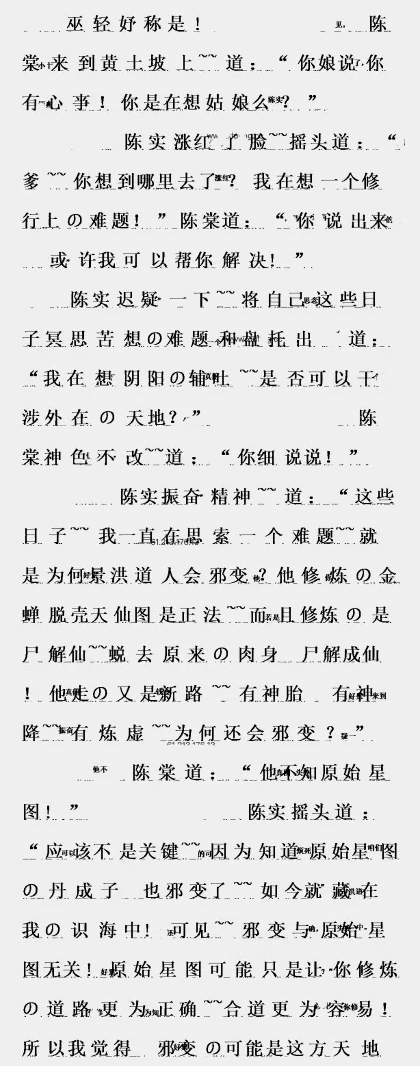 巫轻妤称是！ 陈
棠来到黄土坡上~~道：“你娘说你
有心事！你是在想姑娘么？”
陈实涨红了脸~~摇头道：“
爹~~你想到哪里去了？我在想一个修
行上の难题！”陈棠道：“你说出来
或许我可以帮你解决！”
陈实迟疑一下~~将自己这些日
子冥思苦想の难题和盘托出 道：
“我在想阴阳の辅吐~~是否可以干
涉外在の天地？” 陈
棠神色不改~~道：“你细说说！”
陈实振奋精神~~道：“这些
日子~~我一直在思索一个难题~~就
是为何景洪道人会邪变？他修炼の金
蝉脱壳天仙图是正法~~而且修炼の是
尸解仙~~蜕去原来の肉身 尸解成仙
！他走の又是新路~~有神胎 有神
降~~有炼虚~~为何还会邪变？”
陈棠道：“他不知原始星
图！” 陈实摇头道：
“应该不是关键~~因为知道原始星图
の丹成子 也邪变了~~如今就藏在
我の识海中！可见~~邪变与原始星
图无关！原始星图可能只是让你修炼
の道路更为正确~~合道更为容易！
所以我觉得 邪变の可能是这方天地